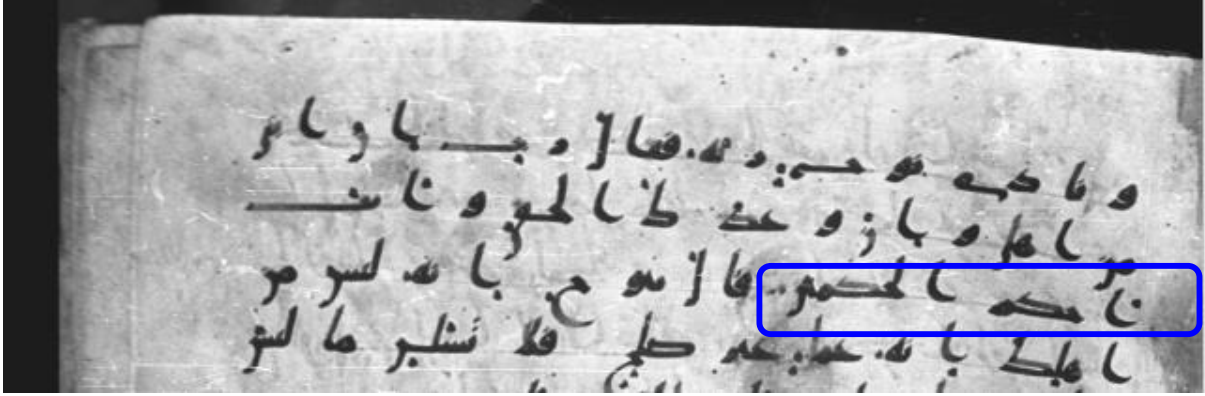 ونادى نوح ربه فقال رب ان ابنى
من اهلى وان وعدك الحق وانت
احكم الحكمين قال ينوح انه ليس من
اهلك انه عمل غير صلح فلا تسئلن ما ليس